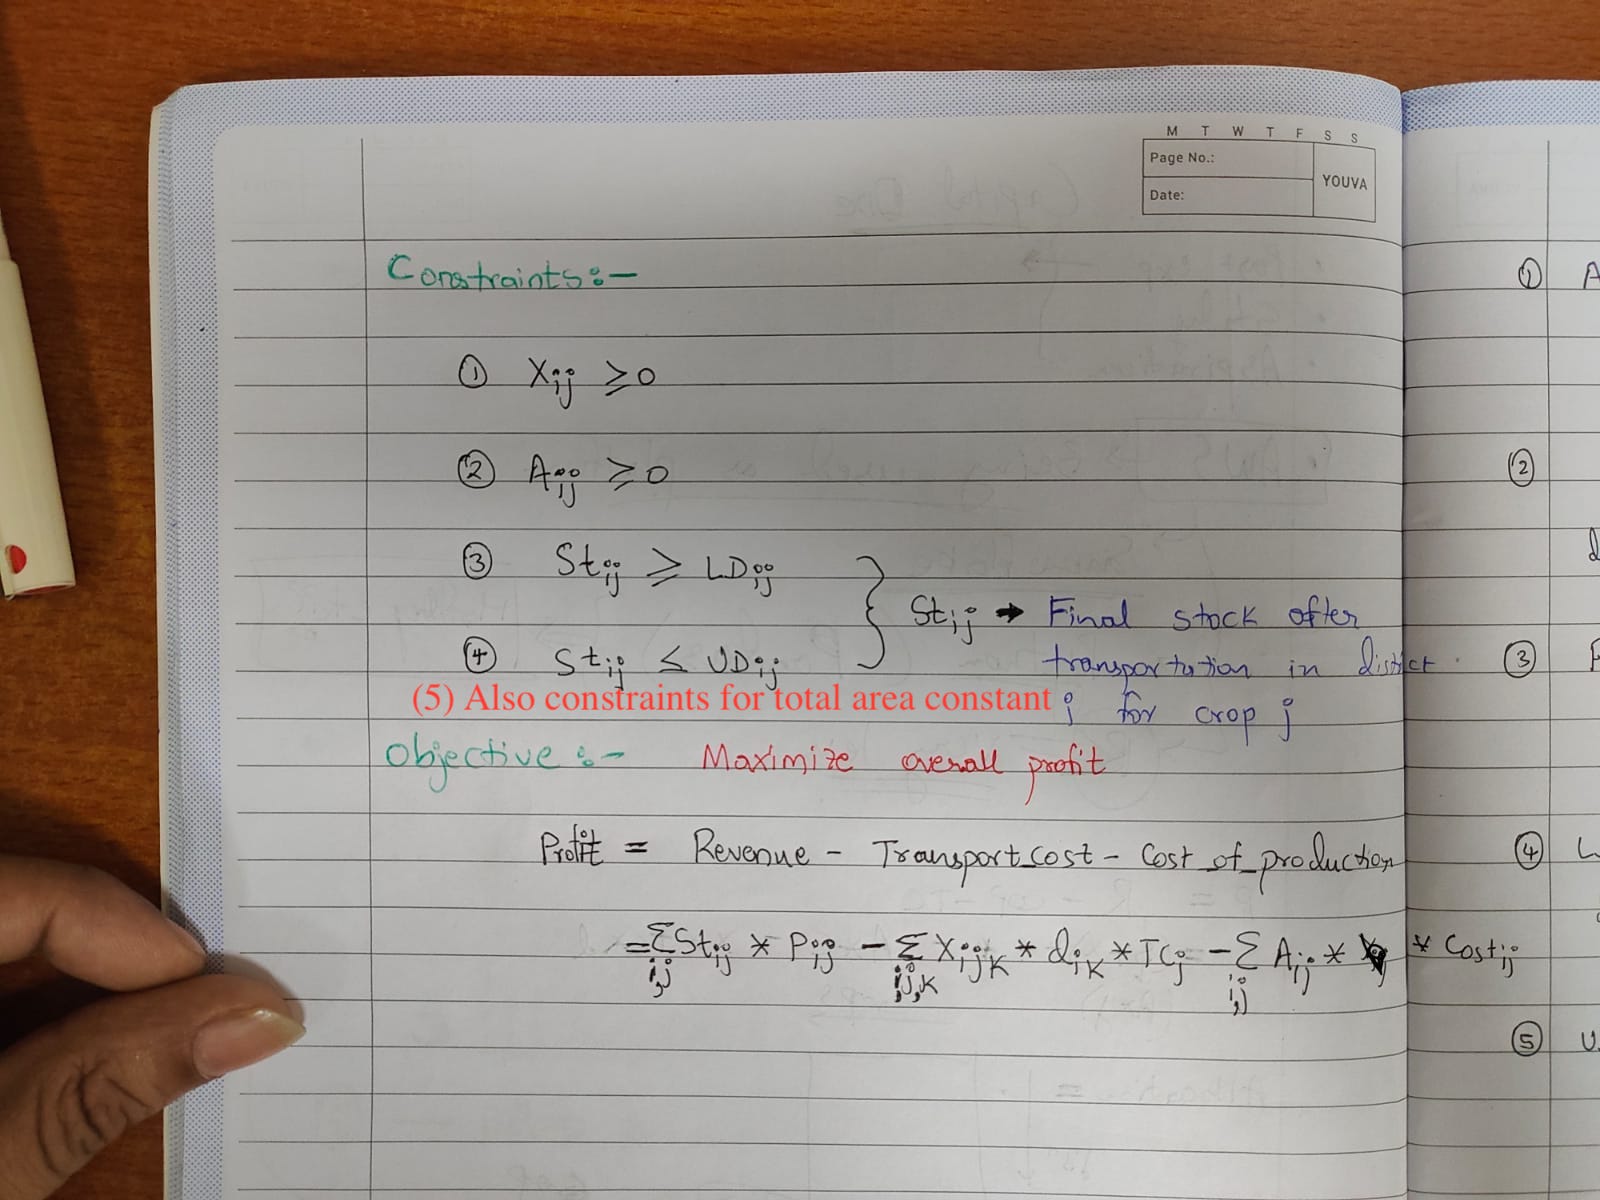 M T W T F S S
Page No.:
YOUVA
Date:
Constraints:-
① Xij ≥0
② Aij ≥0
③ Stij ≥ LDij
④ Stij ≤ UDij
Stij → Final stock after
transportation in district
i for crop j
(5) Also constraints for total area constant
Objective :- Maximize overall profit
Profit = Revenue - Transport_cost - Cost_of_production
= Σ i,j Stij * Pij - Σ i,j,k XijK * diK * TCj - Σ i,j Aij * * Costij
① A
②
d
③
④
⑤ U